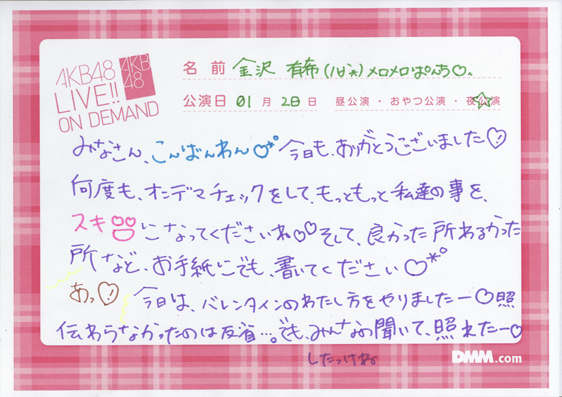 AKB48
LIVE!!
ON DEMAND
AKB
48
名前 金沢 有希(ﾉ∀`*)メロメロぱんち♡.
公演日 01月28日 昼公演・おやつ公演・夜☆公演
みなさん、こんばんわん♡*° 今日も、ありがとうございました♡
何度も、オンデマチェックをして、もっともっと私達の事を、
スキになってくださいね♡♡そして、良かった所わるかった
所など、お手紙にでも、書いてください♡*°
あっ♡! 今日は、バレンタインのわたし方をやりましたー♡照
伝わらなかったのは反省…。でも、みんなの聞いて、照れたー♡
したっけね。
DMM.com